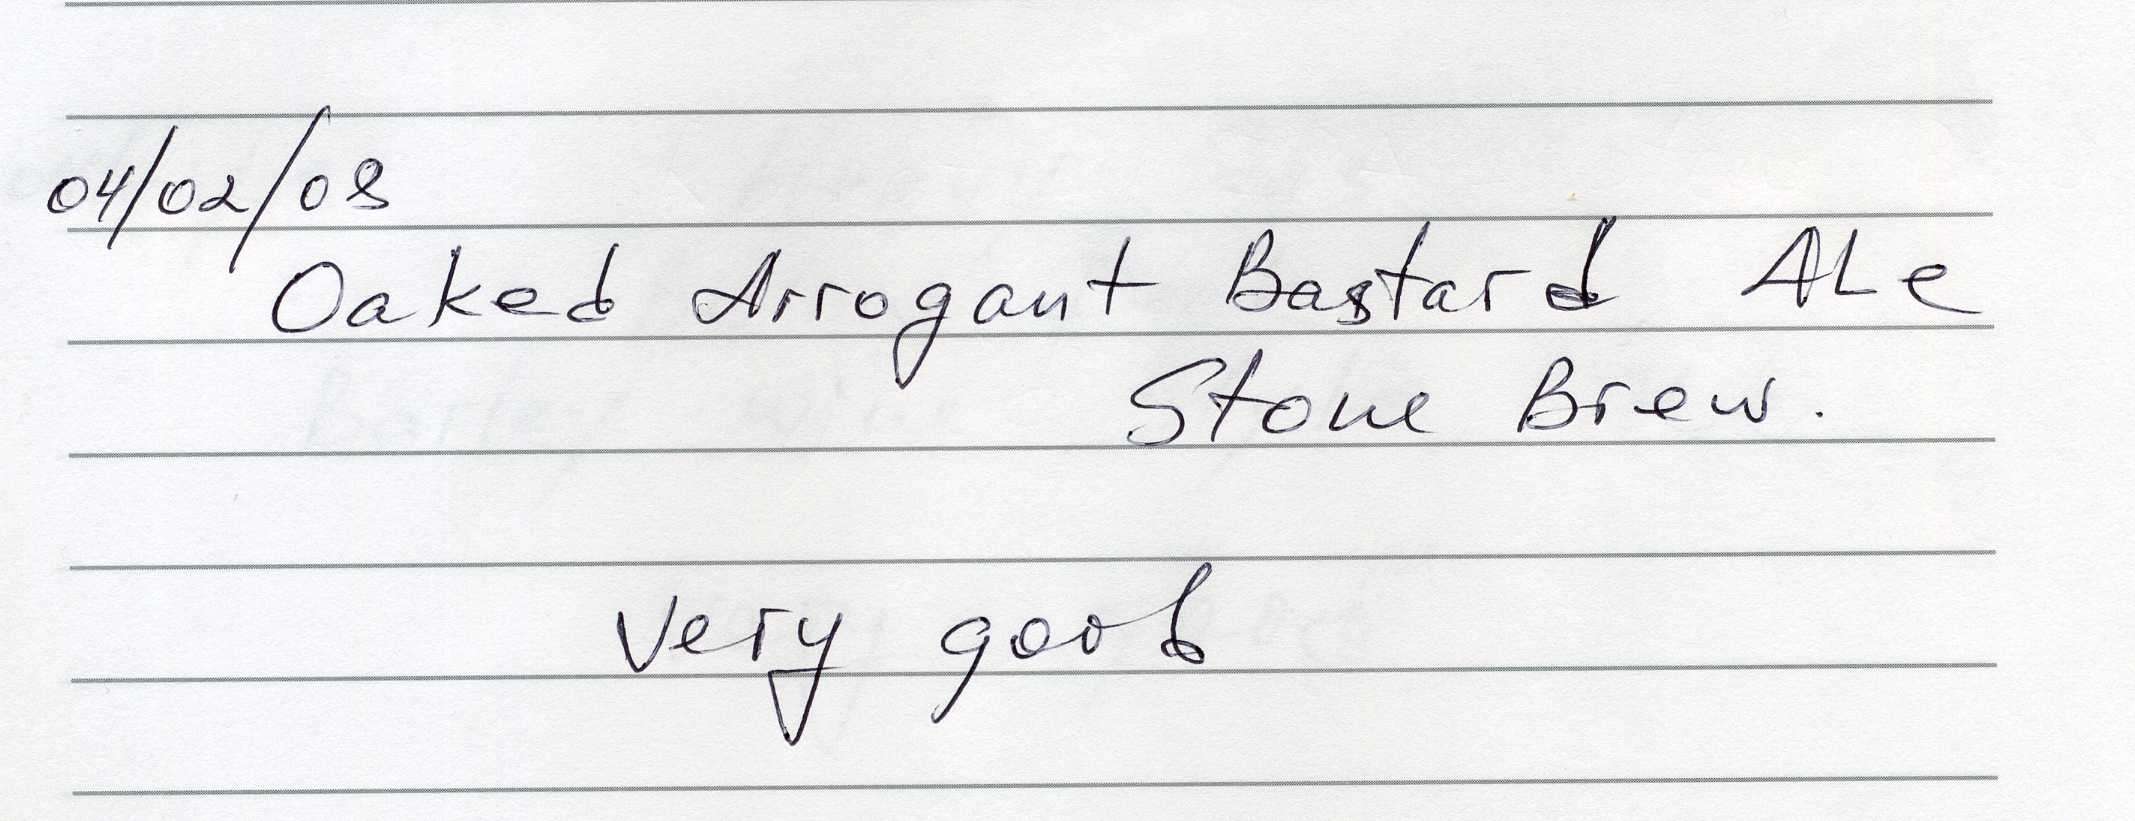 04/02/08
Oaked Arrogant Bastard ALe
Stone Brew.
very good